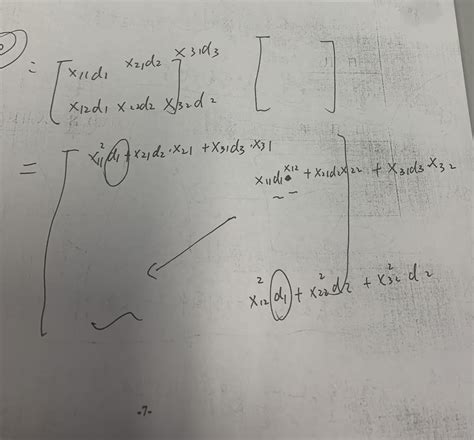 = [ x11d1 x21d2 x31d3
x12d1 x22d2 x32d2 ] [ ]
= [ x11²d1 + x21d2·x21 + x31d3·x31
x11d1·x12 + x21d2x22 + x31d3x32
x12²d1 + x22²d2 + x32²d2 ]
-7-